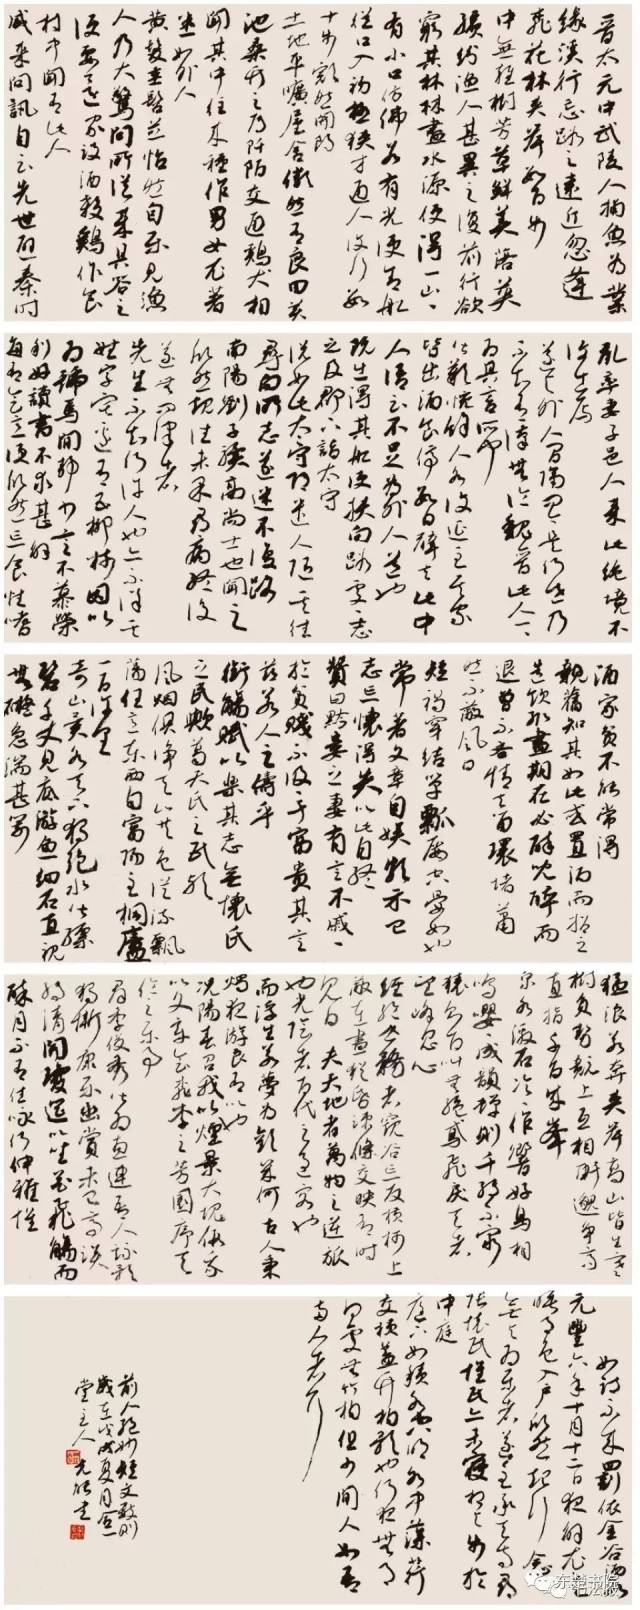 晋太元中武陵人捕魚为業
缘溪行忘路之遠近忽逢
桃花林夹岸数百步
中無雜樹芳草鮮美落英
繽纷漁人甚異之復前行欲
窮其林林盡水源便得一山山
有小口仿佛若有光便舍船
從口入初極狭才通人復行数
十步豁然開朗
土地平曠屋舍儼然有良田美
池桑竹之属阡陌交通鷄犬相
聞其中往来種作男女衣著
悉如外人
黄髮垂髫並怡然自乐见漁
人乃大驚问所從来具答之
便要还家設酒殺鷄作食
村中闻有此人
咸来问訊自云先世避秦时
乱率妻子邑人来此绝境不
復出焉
遂与外人间隔问今是何世乃
不知有漢無论魏晋此人一一
为具言所闻
皆歎惋餘人各復延至其家
皆出酒食停数日辞去此中
人语云不足为外人道也
既出得其船便扶向路處處志
之及郡下詣太守
说如此太守即遣人随其往
尋向所志遂迷不復路
南陽劉子驥高尚士也闻之
欣然规往未果尋病终後
遂无问津者
先生不知何许人也亦不详其
姓字宅邊有五柳树因以
为號焉閒静少言不慕榮
利好讀書不求甚解
每有會意便欣然忘食性嗜
酒家贫不能常得
親舊知其如此或置酒而招之
造饮輒盡期在必醉既醉而
退曾不吝情去留環堵蕭
然不蔽风日
短褐穿结箪瓢屢空晏如也
常著文章自娱颇示己
志忘懷得失以此自终
贊曰黔婁之妻有言不戚戚
於贫贱不汲汲于富贵其言
兹若人之俦乎
衔觴赋以樂其志無懷氏
之民歟葛天氏之民歟
风烟俱净天山共色從流飘
荡任意东西自富阳至桐廬
一百许里
奇山异水天下独绝水皆缥
碧千丈见底游鱼细石直视
無礙急湍甚箭
猛浪若奔夹岸高山皆生寒
树负势競上互相軒邈争高
直指千百成峰
泉水激石泠泠作響好鸟相
鸣嚶嚶成韻蝉则千转不窮
猿则百叫無绝鸢飞戾天者
望峰息心
经纶世務者窥谷忘反横柯上
蔽在晝犹昏疏條交映有时
见日 夫天地者萬物之逆旅
也光陰者百代之过客也
而浮生若夢为歡幾何古人秉
燭夜游良有以也
况陽春召我以煙景大塊假我
以文章会桃李之芳園序天
伦之乐事
群季俊秀皆为惠連吾人詠歌
独慚康乐幽赏未已高談
转清開瓊筵以坐花飛觴而
醉月不有佳咏何伸雅懷
如诗不成罰依金谷酒数
元豐六年十月十二日夜解衣欲
睡月色入户欣然起行念
無与为乐者遂至承天寺尋
张懷民懷民亦未寢相与步於
中庭
庭下如積水空明水中藻荇
交横蓋竹柏影也何夜無月
何處無竹柏但少閒人如吾
两人者耳
前人绝妙短文数则
歲在戊戌夏月
堂主人
东楚书院